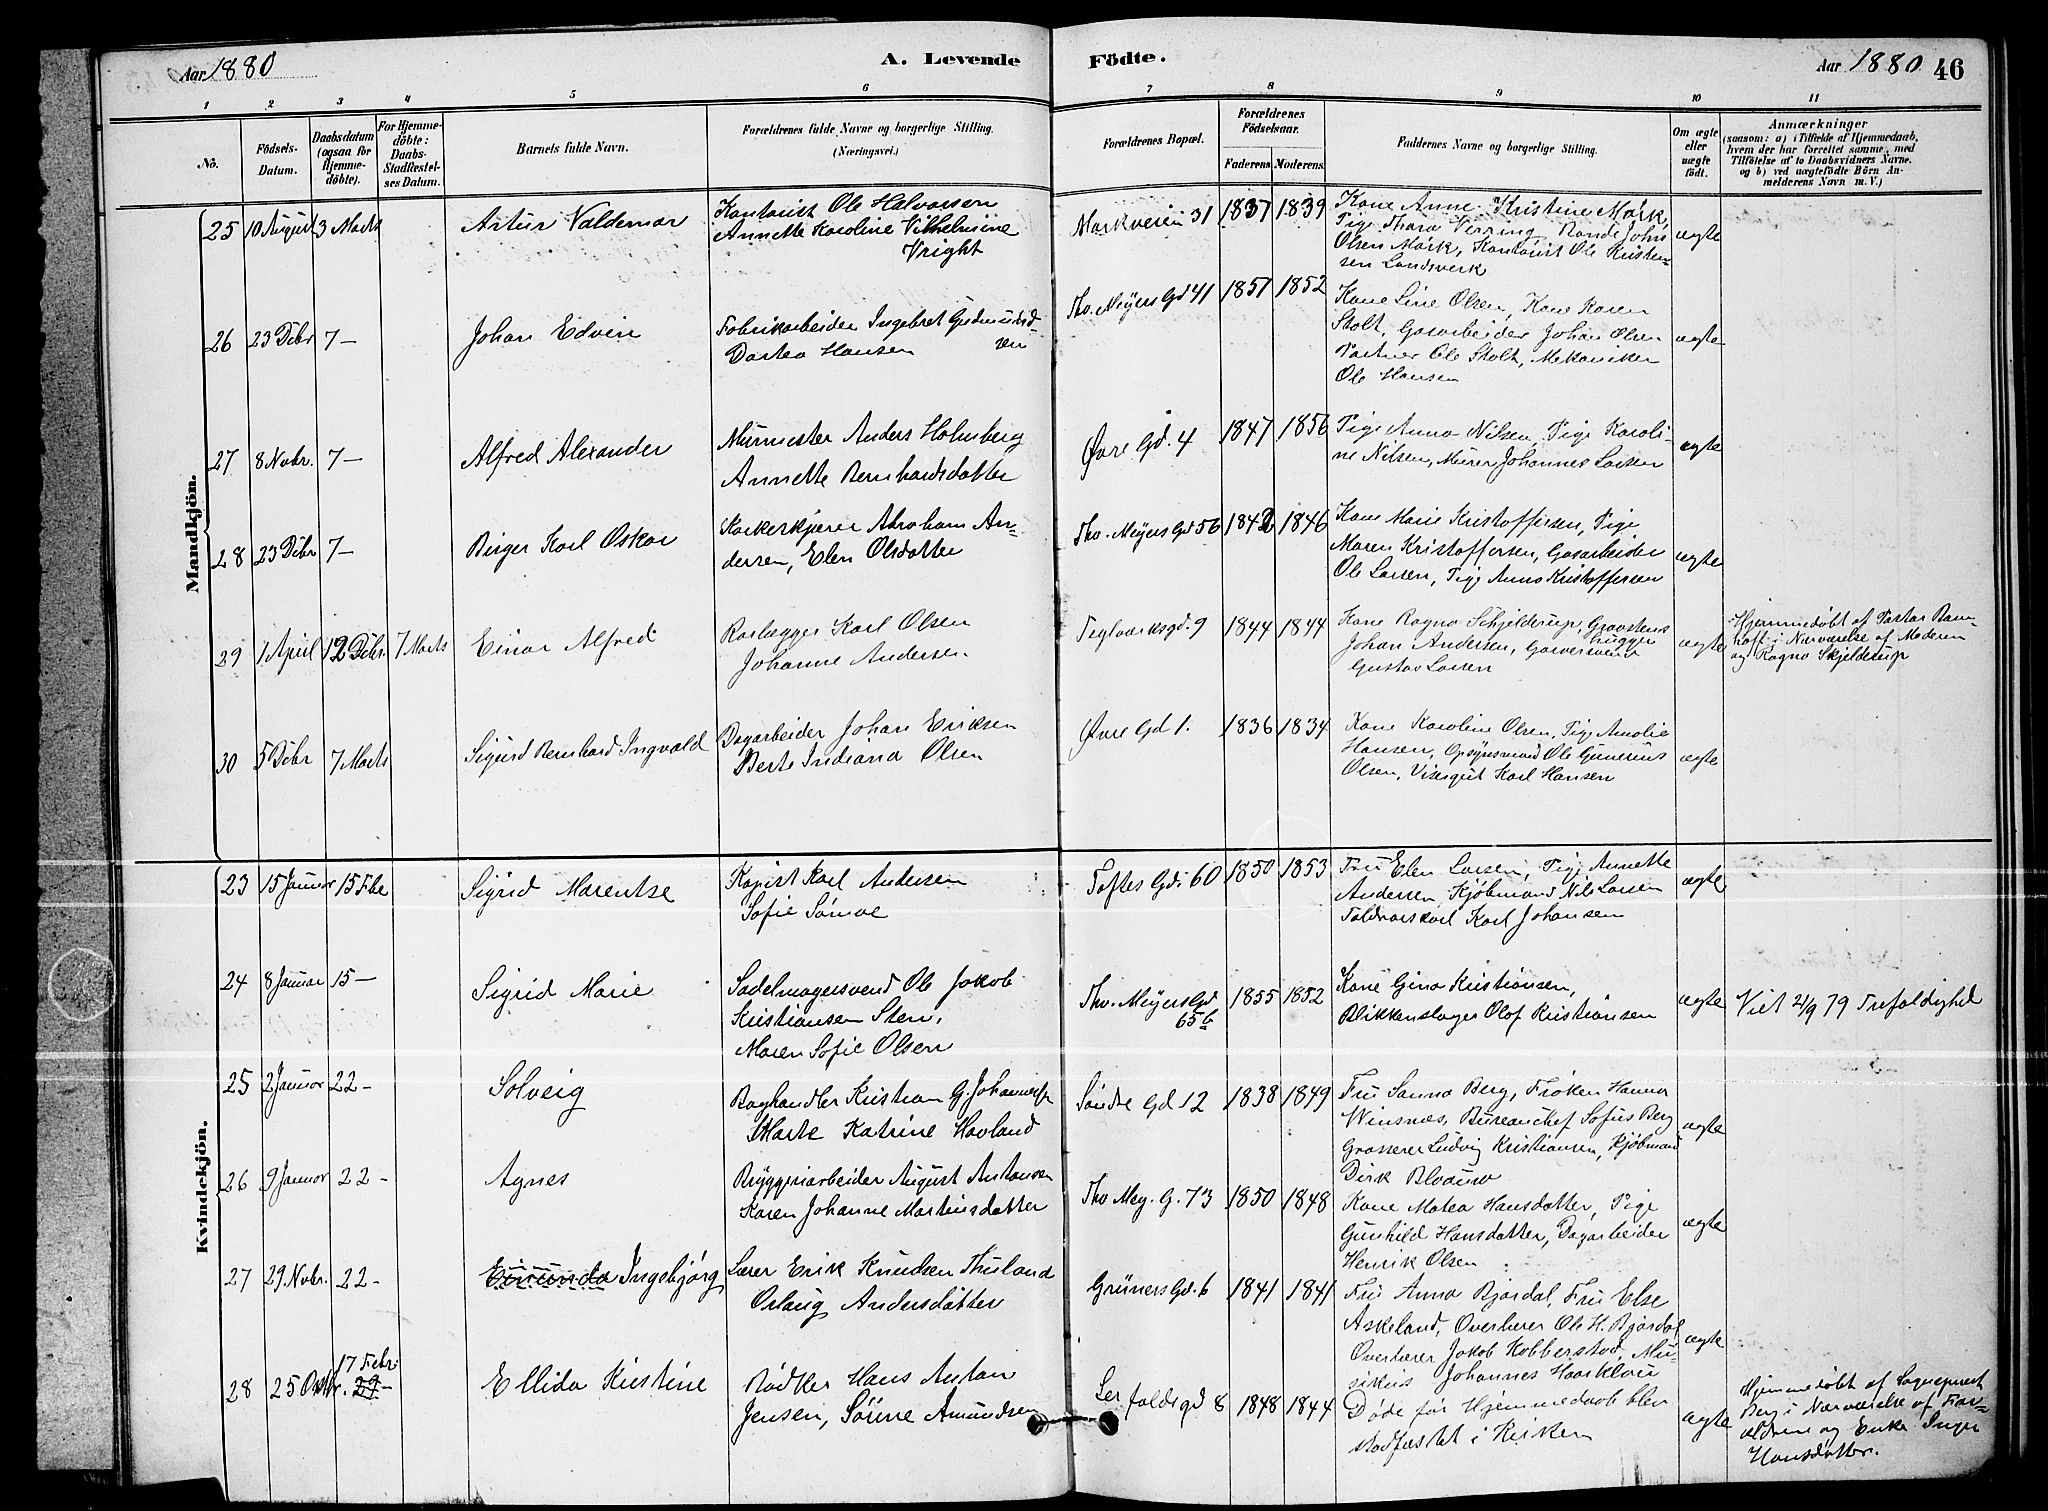 Aar 1880
A. Levende
Födte.
Aar 1880 46
1 2 3 4 5 6 7 8 9 10 11
No.
Födsels-
Datum.
Daabsdatum
(ogsaa for
Hjemme-
döbte).
For Hjemme-
döbte:
Daabs-
Stadfæstel-
ses Datum.
Barnets fulde Navn.
Forældrenes fulde Navne og borgerlige Stilling.
(Næringsvei.)
Forældrenes Bopæl.
Forældrenes
Födselsaar.
Faderens. Moderens.
Faddernes Navne og borgerlige Stilling.
Om ægte
eller
uægte
födt.
Anmærkninger
(saasom: a) i Tilfælde af Hjemmedaab,
hvem der har forrettet samme, med
Tilföielse af to Daabsvidners Navne.
og b) ved uægtefödte Börn An-
melderens Navn m. V.)
Mandkjön.
25 10 August 3 Marts Artur Valdemar
Kontorist Ole Halvorsen
Annette Karoline Vilhelmine
Vright
Markveien 31 1837 1839
Kone Anne Kristine Mørk,
Pige Thora Virring, Bonde John
Olsen Mørk, Kontorist Ole Kristen-
sen Landsverk
ægte
26 23 Debr 7 – Johan Edvin
Fabrikarbeider Ingebret Gudmunds-
sen
Dortea Hansen
Tho. Meyers Gd 41 1851 1852
Kone Line Olsen, Kone Karen
Stolt, Gasarbeider Johan Olsen
Portner Ole Stolt, Mekaniker
Ole Hansen
ægte
27 8 Novbr. 7 – Alfred Alexander
Murmester Anders Holmberg
Annette Bernhardsdatter
Øvre Gd. 4 1847 1856
Pige Anna Nilsen, Pige Karoli-
ne Nilsen, Murer Johannes Larsen
ægte
28 23 Debr 7 – Birger Karl Oskar
Korkskjærer Abraham An-
dersen, Elen Olsdatter
Tho. Meyers Gd 56 1842 1846
Kone Marie Kristoffersen, Pige
Maren Kristoffersen, Gasarbeider
Ole Larsen, Pige Anna Kristoffersen
ægte
29 1 April 12 Debr. 7 Marts Einar Alfred
Rørlægger Karl Olsen
Johanne Andersen
Teglværksgd. 9 1844 1844
Kone Ragna Schjelderup, Gravstens
hugger
Johan Andersen, Garversvend
Gustav Larsen
ægte
Hjemmedøbt af Pastor Bom-
hoff i Nærværelse af Moderen
og Ragna Skjelderup
30 5 Debr 7 Marts Sigurd Bernhard Ingvald
Dagarbeider Johan Eriksen
Berte Indiana Olsen
Øvre Gd 1. 1836 1834
Kone Karoline Olsen, Pige Amalie
Hansen, Opsynsmand Ole Gunerius
Olsen, Visergut Karl Hansen
ægte
Kvindekjön.
23 15 Januar 15 Febr Sigrid Marentse
Kopist Karl Andersen
Sofie Sømoe
Toftes Gd. 60 1850 1853
Fru Elen Larsen, Pige Annette
Andersen, Kjøbmand Nils Larsen
Toldvorskarl Karl Johansen
ægte
24 8 Januar 15 – Sigrid Marie
Sadelmagersvend Ole Jakob
Kristiansen Sten,
Maren Sofie Olsen
Tho. Meyers Gd
65 b 1855 1852
Kone Gina Kristiansen,
Blikkenslager Olof Kristiansen
ægte
Viet 2/9 79 Trefoldighed
25 2 Januar 22 – Solveig
Boghandler Kristian G. Johannesen
Marte Katrine Hovland
Søndre Gd 12 1838 1849
Fru Sanna Berg, Frøken Hanna
Winsnes, Bureauchef Sofus Berg
Grosserer Ludvig Kristiansen, Kjøbmand
Dirk Blaauw
ægte
26 9 Januar 22 – Agnes
Bryggeriarbeider August Antonsen
Karen Johanne Martinsdatter
Tho Mey. G. 73 1850 1848
Kone Matea Hansdatter, Pige
Gunhild Hansdatter, Dagarbeider
Henrik Olsen
ægte
27 29 Novbr. 22 – Ingebjørg
Lærer Erik Knudsen Thuland
Orlaug Andersdatter
Grüners Gd. 6 1841 1841
Fru Anna Bjørdal, Fru Else
Askeland, Overlærer Ole H. Bjørdal
Overlærer Jakob Hobberstad, Mu-
sikus Johannes Haarklou
ægte
17 Febr.
28 25 Oktbr. 29 – Ellida Kristine
Bødker Hans Anton
Jensen, Sørine Amundsen
Lerfaldsgd 8 1848 1844
Døde før Hjemmedaab blev
stadfæstet i Kirken
ægte
Hjemmedøbt af Sogneprest
Berg i Nærværelse af For-
ældrene og Enke Inger
Hansdatter.